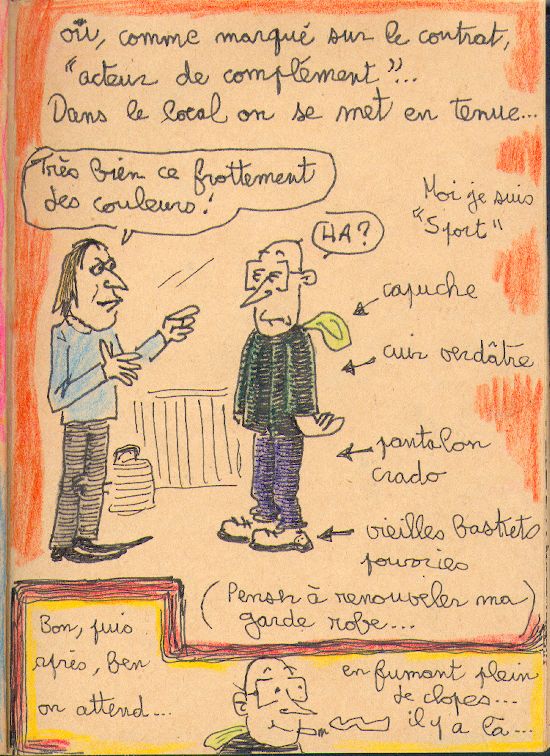 où, comme marqué sur le contrat,
"acteur de complément"...
Dans le local on se met en tenue...
Très bien ce frottement
des couleurs!
HA?
Moi je suis
"Sport"
capuche
cuir verdâtre
pantalon
crado
vieilles baskets
pourries
(Penser à renouveler ma
garde robe...)
Bon, puis
après, ben
on attend...
en fumant plein
de clopes...
il y a là...